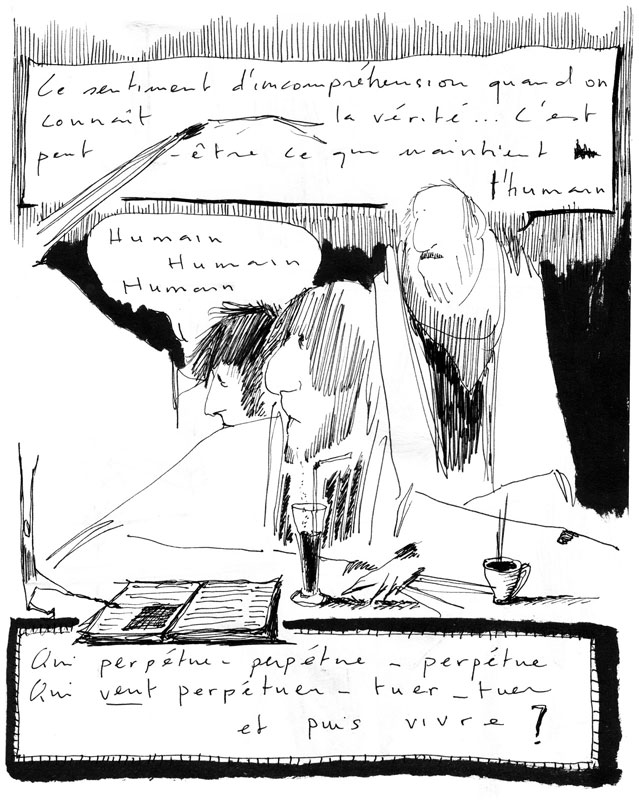 Ce sentiment d'incompréhension quand on
connaît la vérité... C'est
peut -être ce qui maintient
l'humain
Humain
Humain
Humain
Qui perpétue - perpétue - perpétue
Qui veut perpétuer - tuer - tuer
et puis vivre ?